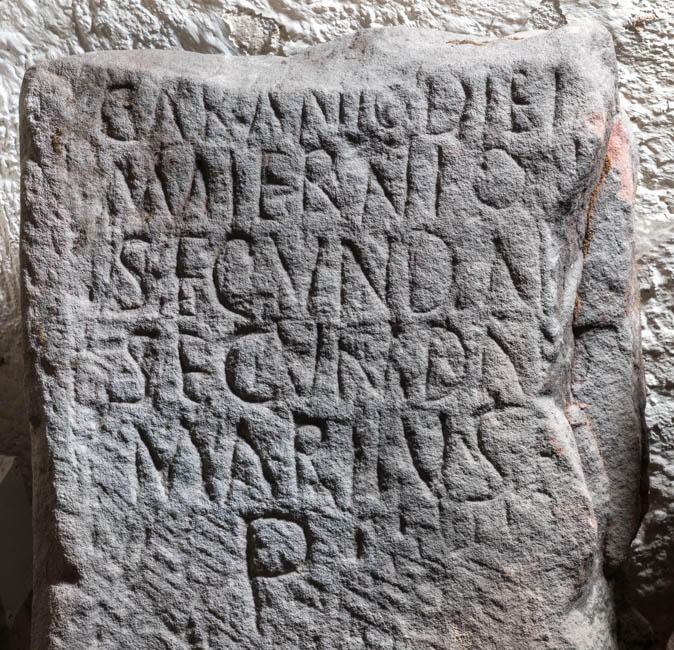 CARANIO DIEI
MATERNIO
SECVNDAI
SECVNDA
MARIIVS
P